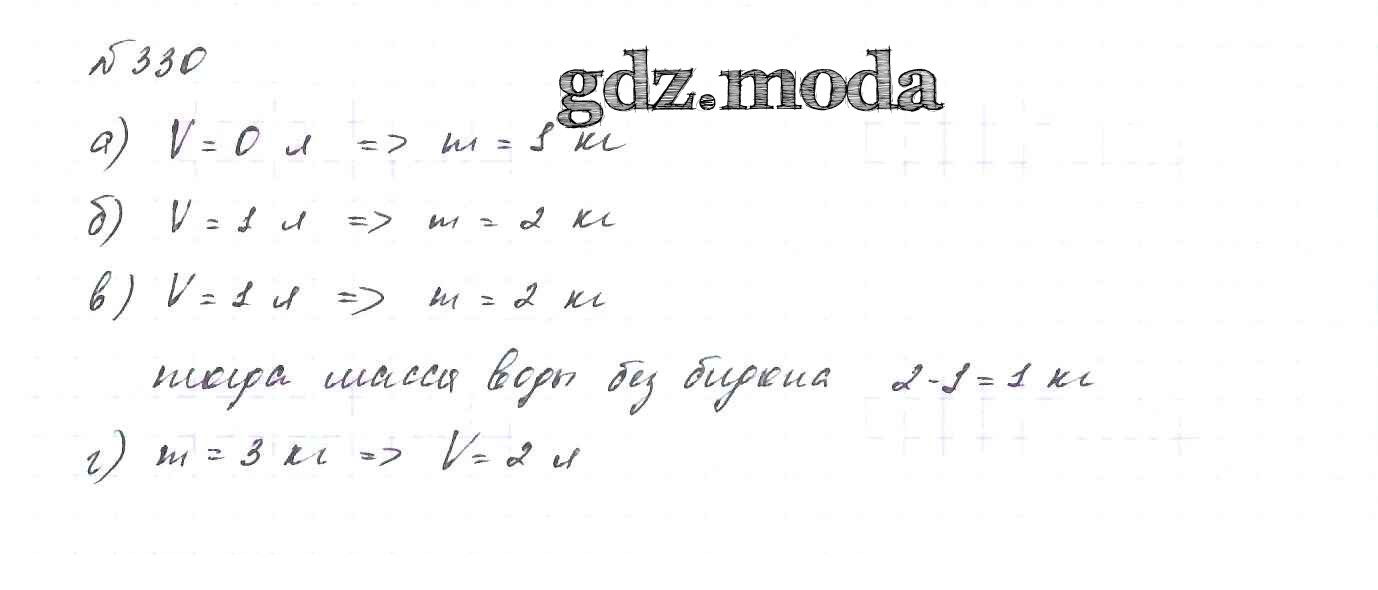 №330
gdz.moda
а) V = 0 л => m = 1 кг
б) V = 1 л => m = 2 кг
в) V = 1 л => m = 2 кг
тогда масса воды без бидона 2-1 = 1 кг
г) m = 3 кг => V = 2 л